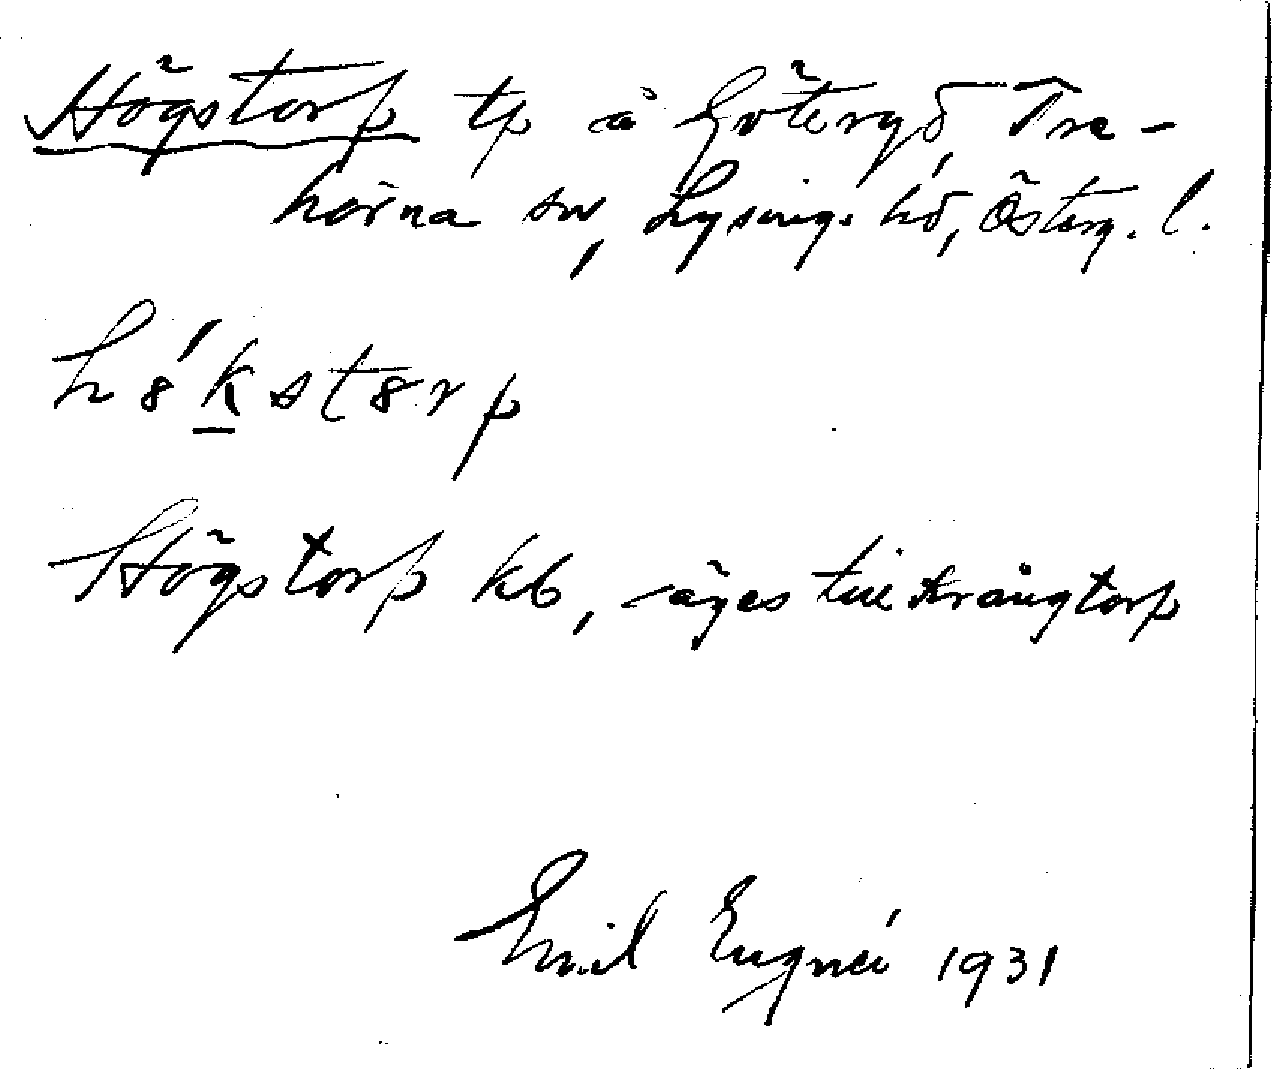 Högstorp tp å Göteryd, Tre-
hörna sn, Lysings hd, Österg. l.
hökstörp
Högstorp kb, äges till Krångtorp
Emil 1931